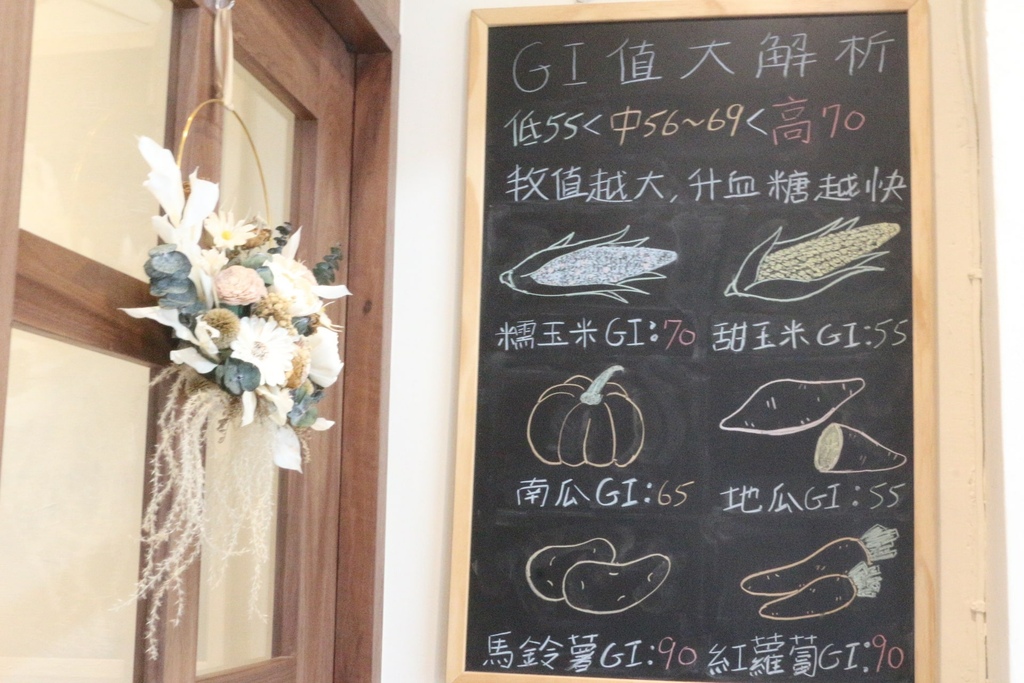 GI值大解析
低55<中56~69<高70
數值越大,升血糖越快
糯玉米GI:70 甜玉米GI:55
南瓜GI:65 地瓜GI:55
馬鈴薯GI:90 紅蘿蔔GI:90